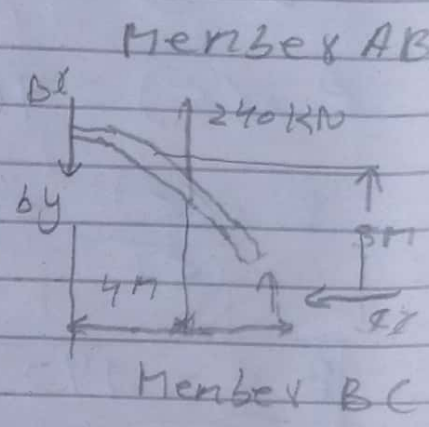 Member AB
Bx
240 KN
by
3M
4M
Member BC